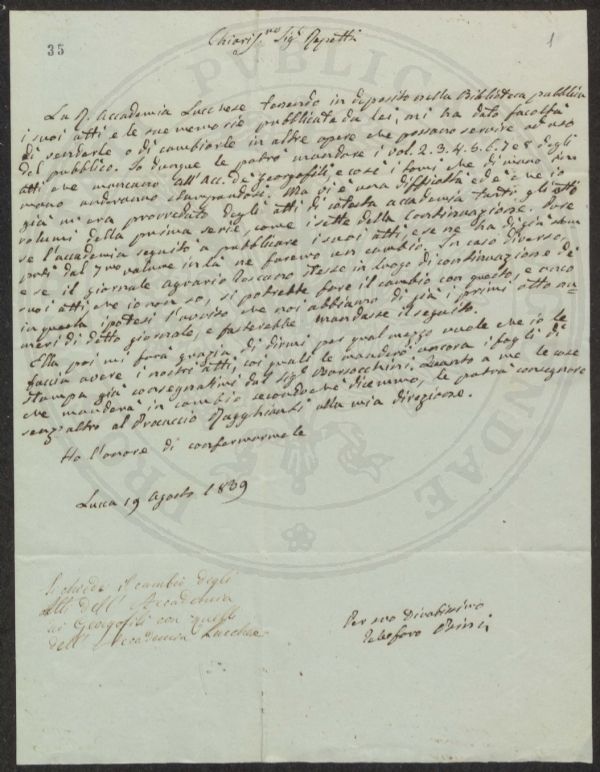 35
1
Chiaris.mo Sig.r Repetti
La R. Accademia Lucchese tenendo in deposito nella Biblioteca pubblica
i suoi atti e le sue memorie pubblicate da lei, mi ha dato facoltà
di venderle o di cambiarle in altre opere che possano servire ad uso
del pubblico. Io dunque le potrò mandare i vol. 2. 3. 4. 5. 6. 7 e 8 degli
atti che mancano all'Acc. de' Georgofili, e così i tomi che di mano in
mano anderanno stampandosi. Ma vi è una difficoltà ed è che io
già m'era provveduto degli atti di cotesta accademia tanti gli otto
volumi della prima serie, come i sette della continuazione. Pure
se l'accademia seguitò a pubblicare i suoi atti, e se ne ha di già stam
pati dal 7mo volume in là ne faremo un cambio. In caso diverso,
e se il giornale agrario toscano stesse in luogo di continuazione de'
suoi atti che io non so, si potrebbe fare il cambio con questo, e anco
in questa ipotesi l'avviso che noi abbiamo di già i primi otto nu-
meri di detto giornale, e basterebbe mandasse il seguito.
Ella poi mi farà grazia di dirmi per qual mezzo vuole che io le
faccia avere i nostri atti, coi quali le manderò ancora i fogli di
stampa già consegnatimi dal Sig.r Barsocchini. Quanto a me le cose
che manderà in cambio secondo che dicemmo, le potrà consegnare
senz'altro al Procaccio Ragghianti alla mia direzione.
Ho l'onore di confermarmele
Lucca 19 Agosto 1839
Si chiede il cambio degli
Atti dell'Accademia
dei Georgofili con quelli
dell'Accademia Lucchese
Per suo Devotissimo
Telesforo Bini
PUBLICAE